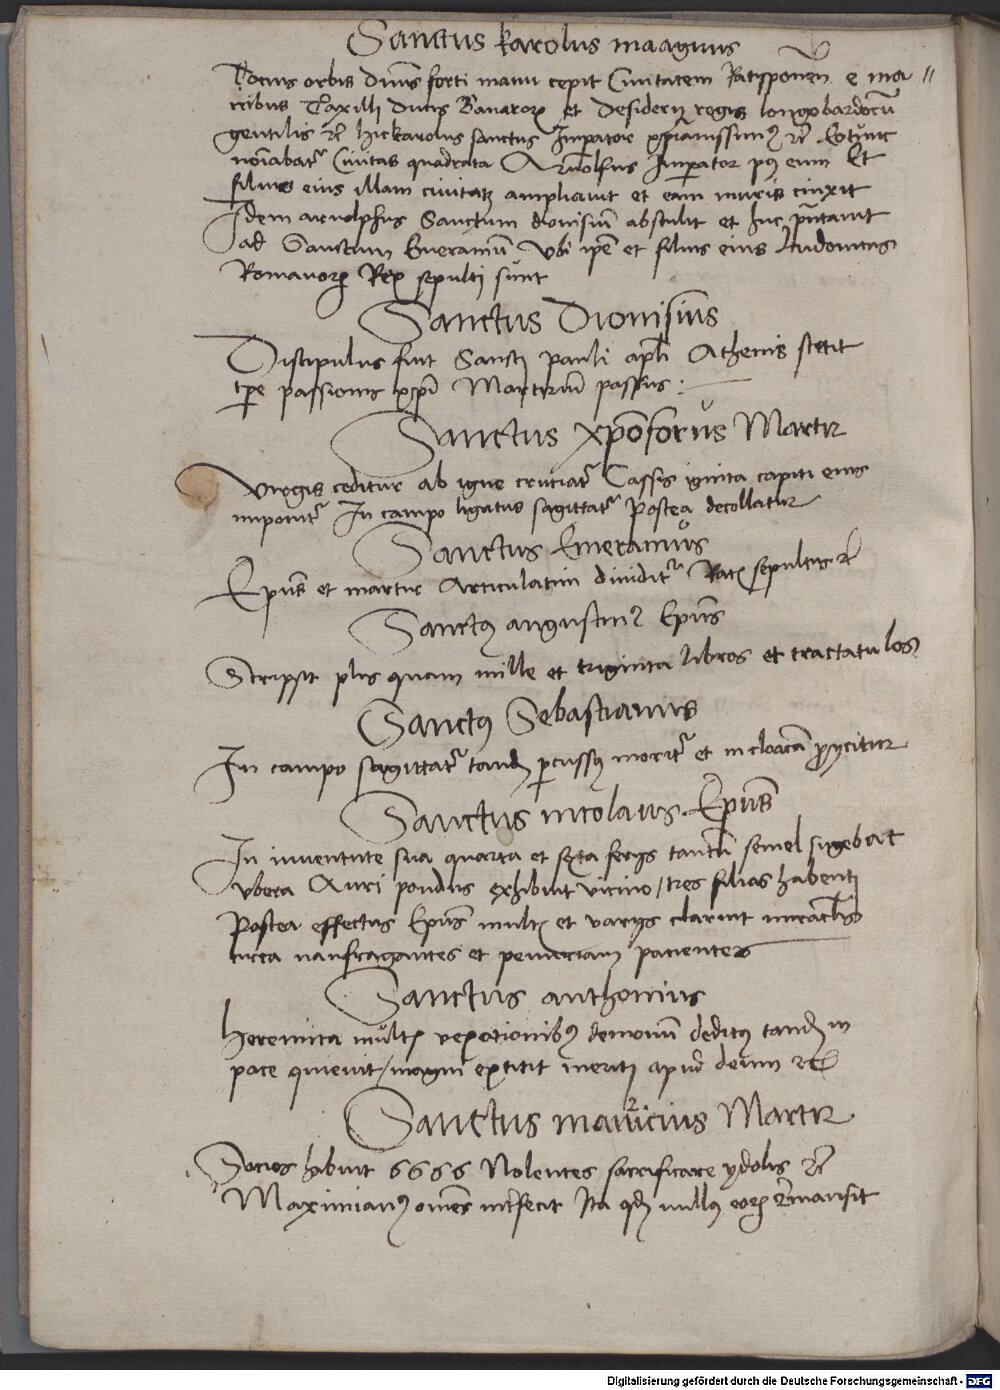 Sanctus karolus maagnus
Tocius orbis diuus forti manu cepit Ciuitatem Ratisponen e ma//
nibus Taxilli Ducis Bauaroꝝ et Desiderij regis longobardorũ
gentilis ꝛc hic karolus sanctus Impator xp̃ianissimꝰ ꝛc Et tũnc
noĩabatʳ Ciuitas quadrata Arnolfus Imperator pꝰ eum Et
filius eius illam ciuitatẽ ampliauit et eam muris cinxit
Idem arnolphus Sanctum dionisiũ abstulit et huc
ad Sanctum Emeramũ Vbi ip̃e et filius eius Ludouicus
Romanoꝝ Rex sepulti sũnt
Sanctus Dionisius
Discipulus fuit Sancti pauli ap̃li Athenis stetit
tp̃e passionis xp̃i Martiriũ passus :
Sanctus xpõforus Martir
Viregis ceditur ab igne cruciatʳ Cassis ignita capiti eius
imponitʳ In campo ligatus sagittatʳ Postea decollatur
Sanctus Emeramus
Ep̃us et martir Articulatim diuiditʳ Ratᵉ sepultus ꝛc
Sanctꝰ augustinꝰ Ep̃us
Scripsit plus quam mille et triginta libros et tractatulos
Sanctꝰ Sebastianus
In campo sagittatʳ tandẽ percussꝰ moritʳ et in cloacã proijcitur
Sanctus nicolaus Ep̃us
In iuuentute sua quarta et sexta ferijs tantũ semel sugebat
vbera Auri pondus exhibuit vicino / tres filias habenti
Postea effectus Ep̃us multᵉ et varijs claruit miraclis
circa naufragantes et penuriam pacientes
Sanctus anthonius
heremita multᵉ vexationibꝰ demonũ deditꝰ tandẽ in
pace quieuit / magni extitit meriti apud deum ꝛc
Sanctus mauricius Martir
Socios habuit 6666 Nolentes sacrificare ydolis ꝛc
Maximianꝰ om̃es interfecit Ita qd̃ nullꝰ eoꝝ remansit
Digitalisierung gefördert durch die Deutsche Forschungsgemeinschaft - DFG